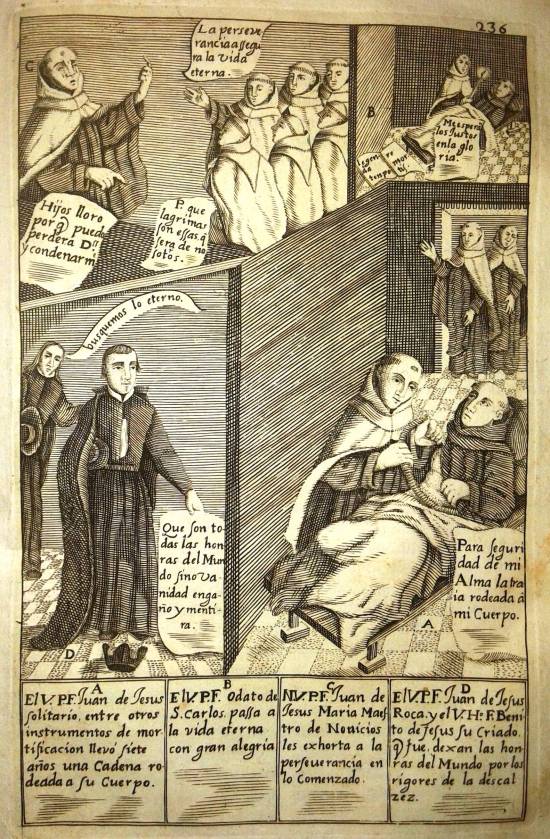 236
C
La perseve
rancia assegu
ra la vida
eterna.
Hijos lloro
por q̃ pued
perderà Dˢ
y condenarm
P. que
lagrimas
son essas, q̃
sera de no
sotos.
B
Me espera
los Justos
en la glo
ria.
tempo
re mor
tis
busquemos lo eterno.
Que son to-
das las hon
ras del Mun
do sino va-
nidad enga-
ño y menti-
ra.
D
Para seguri
dad de mi
Alma la tra
ia rodeada â
mi Cuerpo.
A
A
El V. P. F. Juan de Iesus
solitario, entre otros
instrumentos de mor
tificacion llevò siete
años una Cadena ro
deada a su Cuerpo.
B
El V. P. F. Odato de
S. Carlos, passa a
la vida eterna
con gran alegria
C
N. V. P. F. Juan de
Jesus Maria Maes
tro de Nouicios
les exhorta a la
perseuerancia en
lo Comenzado.
D
El V. P. F. Juan de Jesus
Roca, y el V. H.º F. Beni
to de Jesus su Criado.
q̃ fue, dexan las hon
ras del Mundo por los
rigores de la descal
zez.